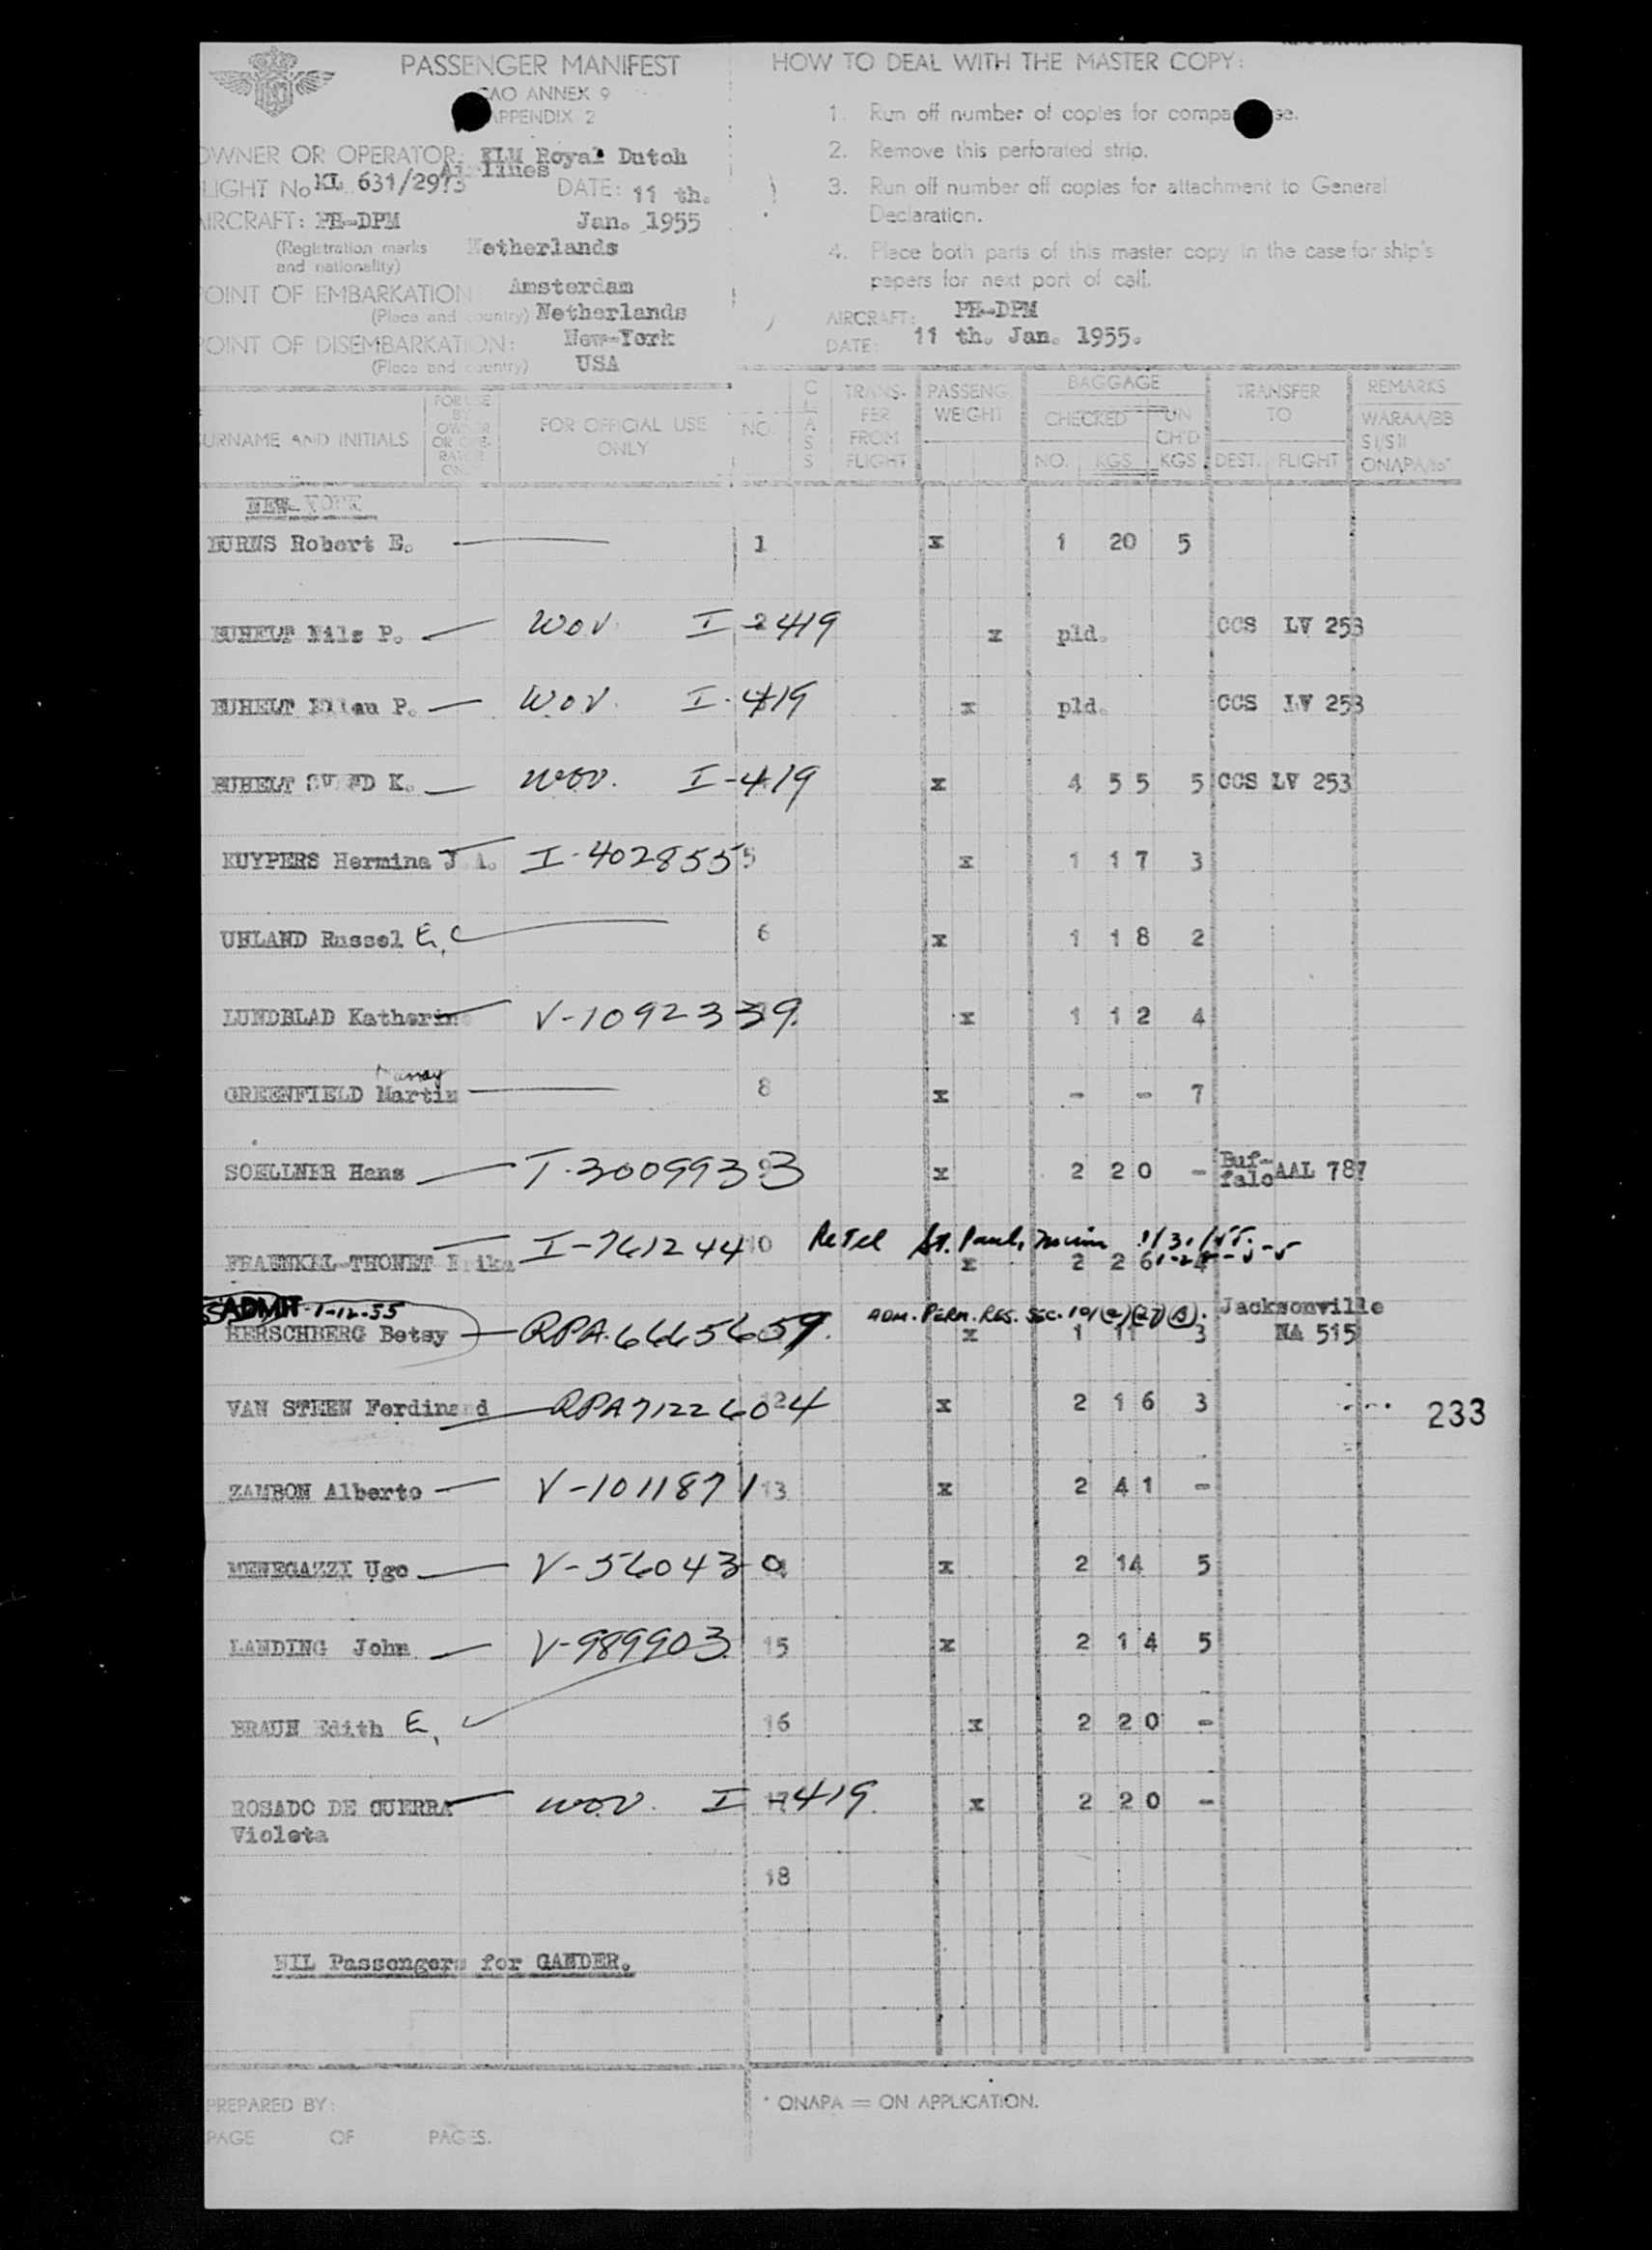 PASSENGER MANIFEST
ICAO ANNEX 9
APPENDIX 2
OWNER OR OPERATOR: KLM Royal Dutch
Airlines
FLIGHT No KL 631/2973 DATE: 11 th.
AIRCRAFT: PH-DPM Jan. 1955
(Registration marks Netherlands
and nationality)
POINT OF EMBARKATION Amsterdam
(Place and country) Netherlands
POINT OF DISEMBARKATION: New-York
(Place and country) USA
HOW TO DEAL WITH THE MASTER COPY:
1. Run off number of copies for compa se.
2. Remove this perforated strip.
3. Run off number off copies for attachment to General
Declaration.
4. Place both parts of this master copy in the case for ship's
papers for next port of call.
AIRCRAFT: PH-DPM
DATE: 11 th. Jan. 1955.
SURNAME AND INITIALS FOR USE BY OWNER OR OPERATOR ONLY FOR OFFICIAL USE ONLY NO. CLASS TRANSFER FROM FLIGHT PASSENG. WEIGHT BAGGAGE CHECKED NO. KGS UN CH'D KGS TRANSFER TO DEST. FLIGHT REMARKS WARAA/BB SI/SII ONAPA/to*
NEW YORK
BURNS Robert E. — 1 x 1 20 5
BUHELT Nils P. — WOV. I-2419 x pld. CCS LV 253
BUHELT P. — WOV. I-419 x pld. CCS LV 253
BUHELT K. — WOV. I-419 x 4 55 5 CCS LV 253
KUYPERS Hermina J. A. I-4028555 5 x 1 17 3
UHLAND Russel E. 6 x 1 18 2
LUNDBLAD Katherine — V-1092339. x 1 12 4
Murray
GREENFIELD Martin — 8 x - - 7
SOELLNER Hans — I-3009933 x 2 20 - Buf-
falo AAL 787
FRAENKEL-THONET Erika — I-761244 10 ReTel St. Paul, Minn 1/31/55.
x 2 26
ADMIT 1-12-55 ADM. PERM. RES. SEC. 101(a)(27)(B). Jacksonville
HERSCHBERG Betsy — RPA.6665659. x 1 11 3 NA 515
VAN STEEN Ferdinand — RPA7122604 12 x 2 16 3
233
ZAMBON Alberto — V-1011871 13 x 2 41 -
MENEGAZZI Ugo — V-560430 x 2 14 5
LANDING John — V-989903. 15 x 2 14 5
BRAUN Edith E. 16 x 2 20 -
ROSADO DE GUERRA — WOV. I-419. 17 x 2 20 -
Violeta
18
NIL Passengers for GANDER.
PREPARED BY:
PAGE OF PAGES.
* ONAPA = ON APPLICATION.